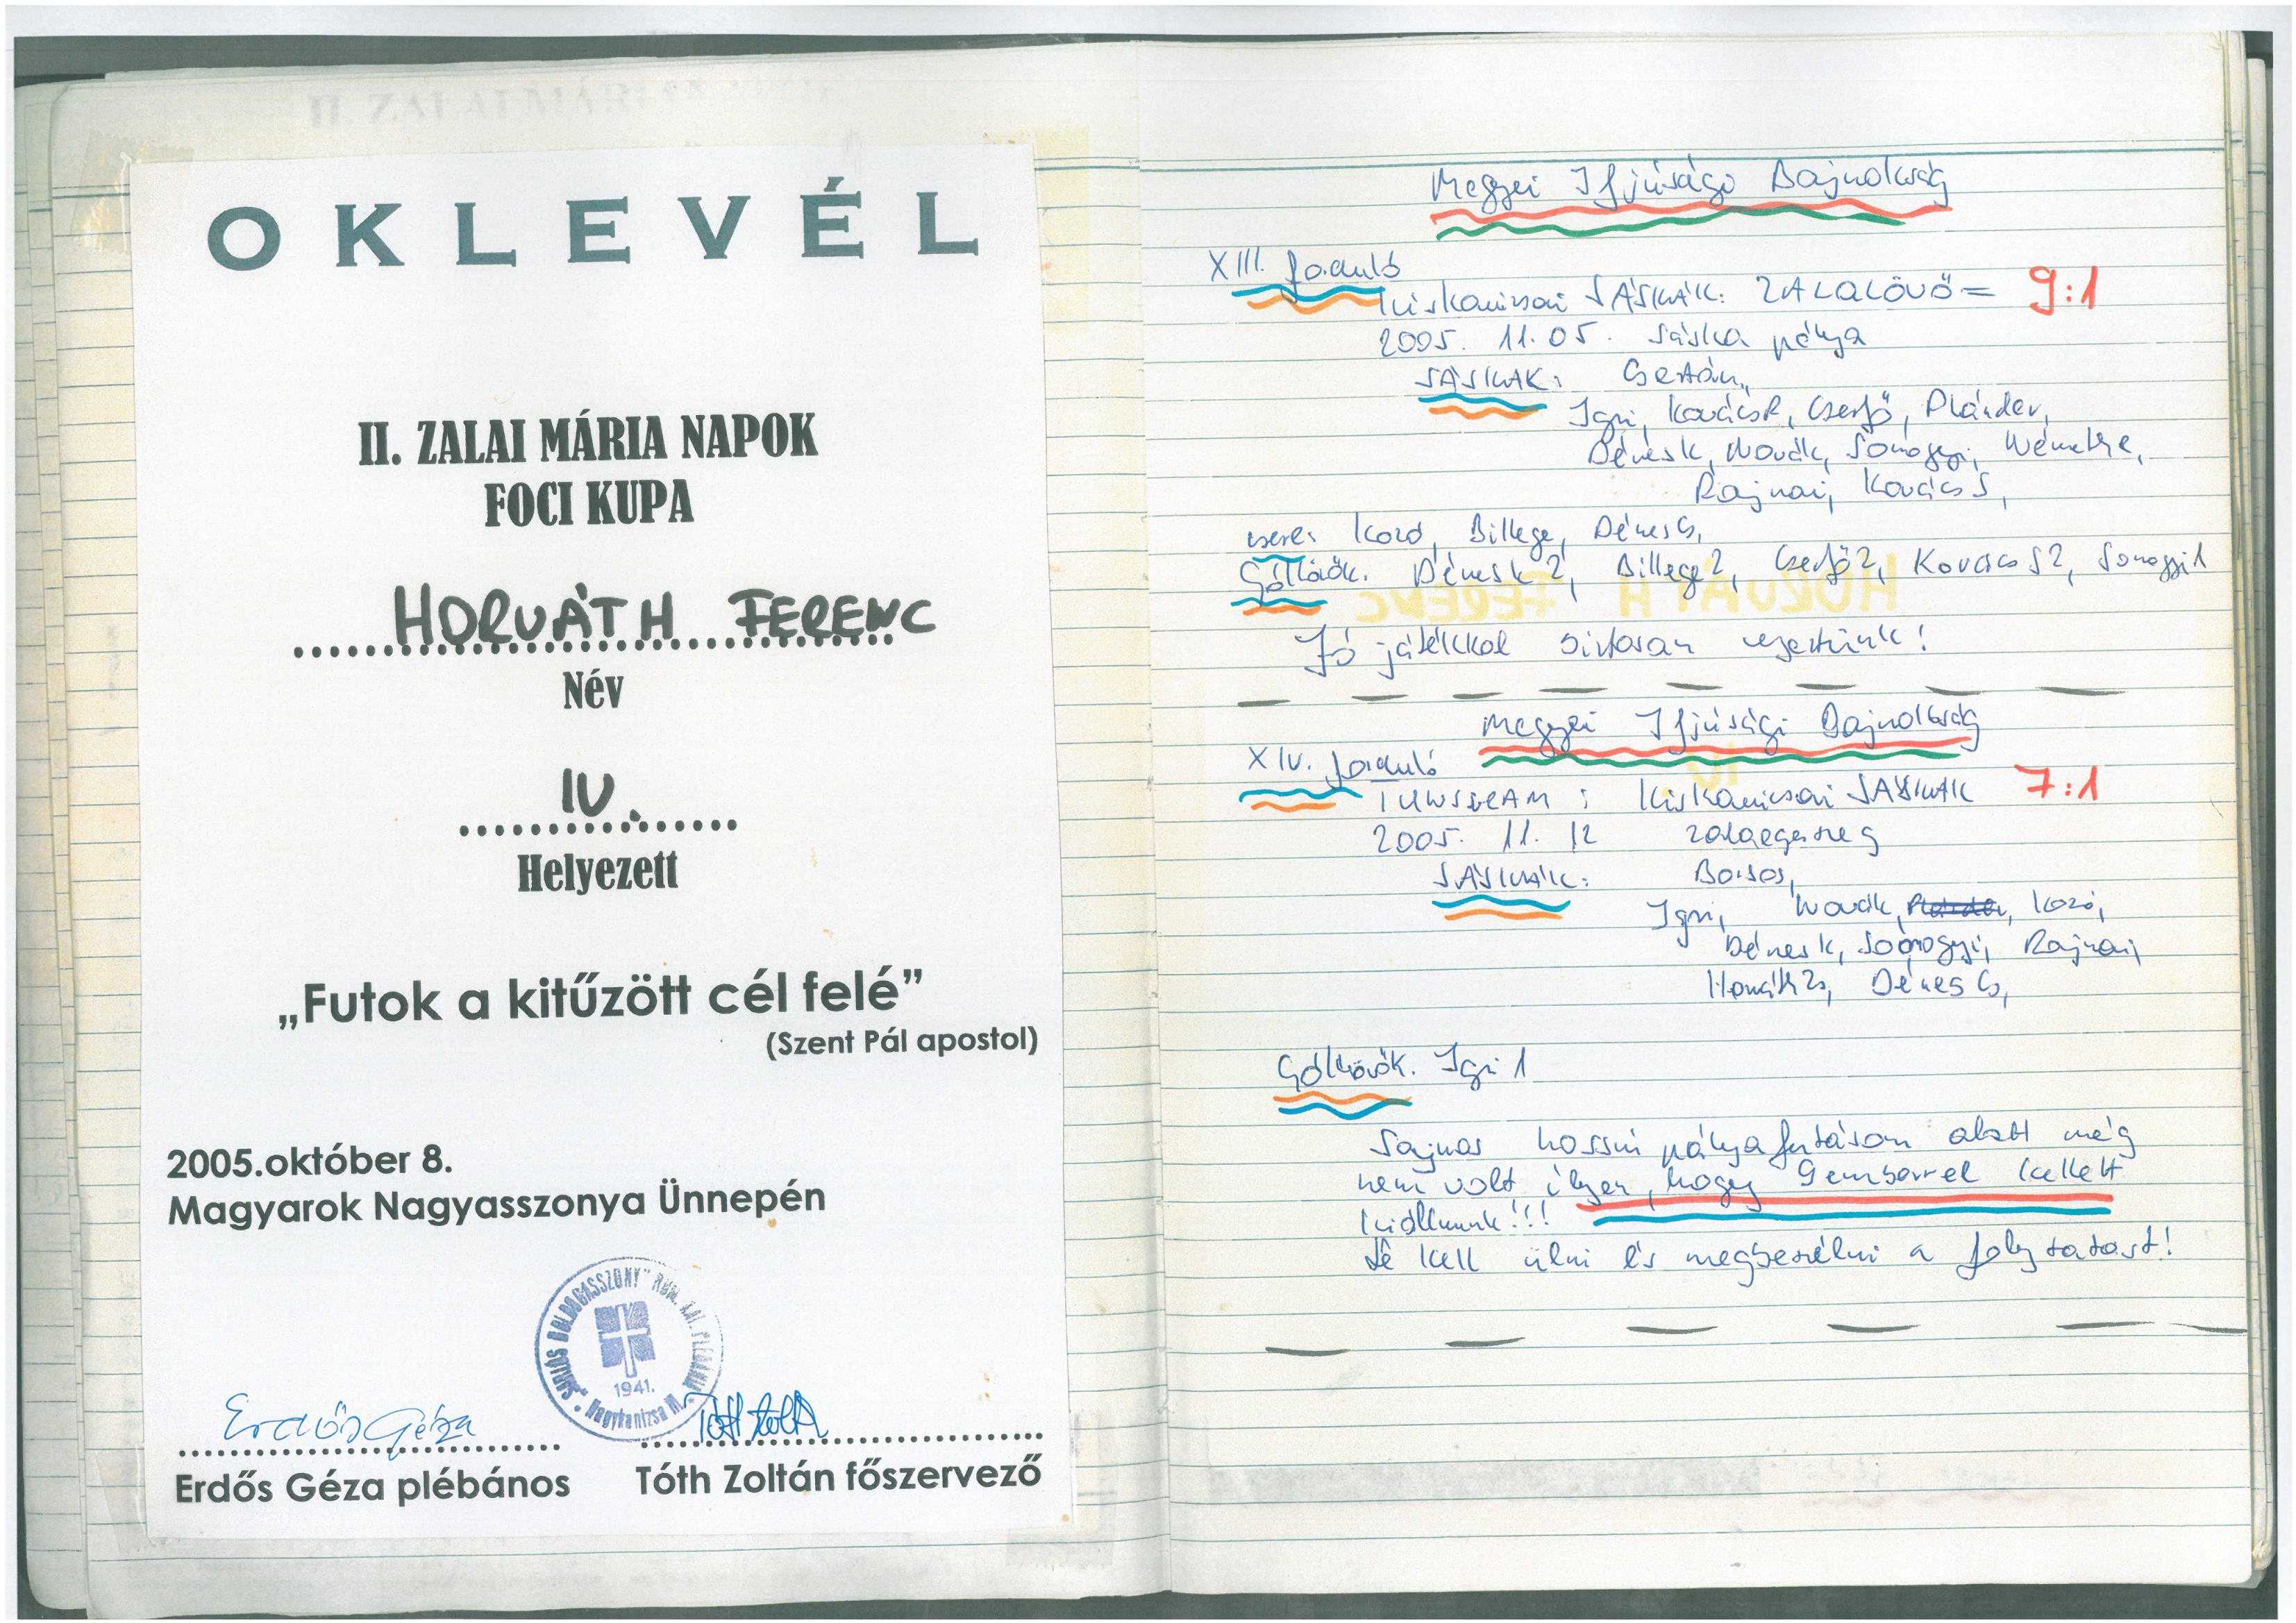 OKLEVÉL
II. ZALAI MÁRIA NAPOK
FOCI KUPA
HORVÁTH FERENC
Név
IV.
Helyezett
„Futok a kitűzött cél felé”
(Szent Pál apostol)
2005.október 8.
Magyarok Nagyasszonya Ünnepén
1941.
Nagykanizsa
Erdős Géza
Tóth Zoltán
Erdős Géza plébános
Tóth Zoltán főszervező
Megyei Ifjúsági Bajnokság
XIII. forduló
Kiskanizsai SÁSKÁK: ZALALÖVŐ = 9:1
2005. 11.05. Sáska pálya
SÁSKÁK:
Igri, Kovács R, Cserfő, Plánder,
Dénes K, Novák, Somogyi, Németh R,
Rajnai, Kovács S,
csere: Kozó, Billege, Dénes G,
Góllövők. Dénes K 2, Billege 2, Cserfő 2, Kovács S 2, Somogyi 1
Jó játékkal biztosan vezettünk!
Megyei Ifjúsági Bajnokság
XIV. forduló
TUNSGRAM : Kiskanizsai SÁSKÁK 7:1
2005. 11. 12 Zalaegerszeg
SÁSKÁK: Boros,
Igri, Novák, Plánder, Kozó,
Dénes K, Somogyi, Rajnai,
Horváth Zs, Dénes G,
Góllövők. Igri 1
Sajnos hosszú pályafutásom alatt még
nem volt ilyen, hogy 9 emberrel kellett
kiállnunk!!!
Le kell ülni és megbeszélni a folytatást!